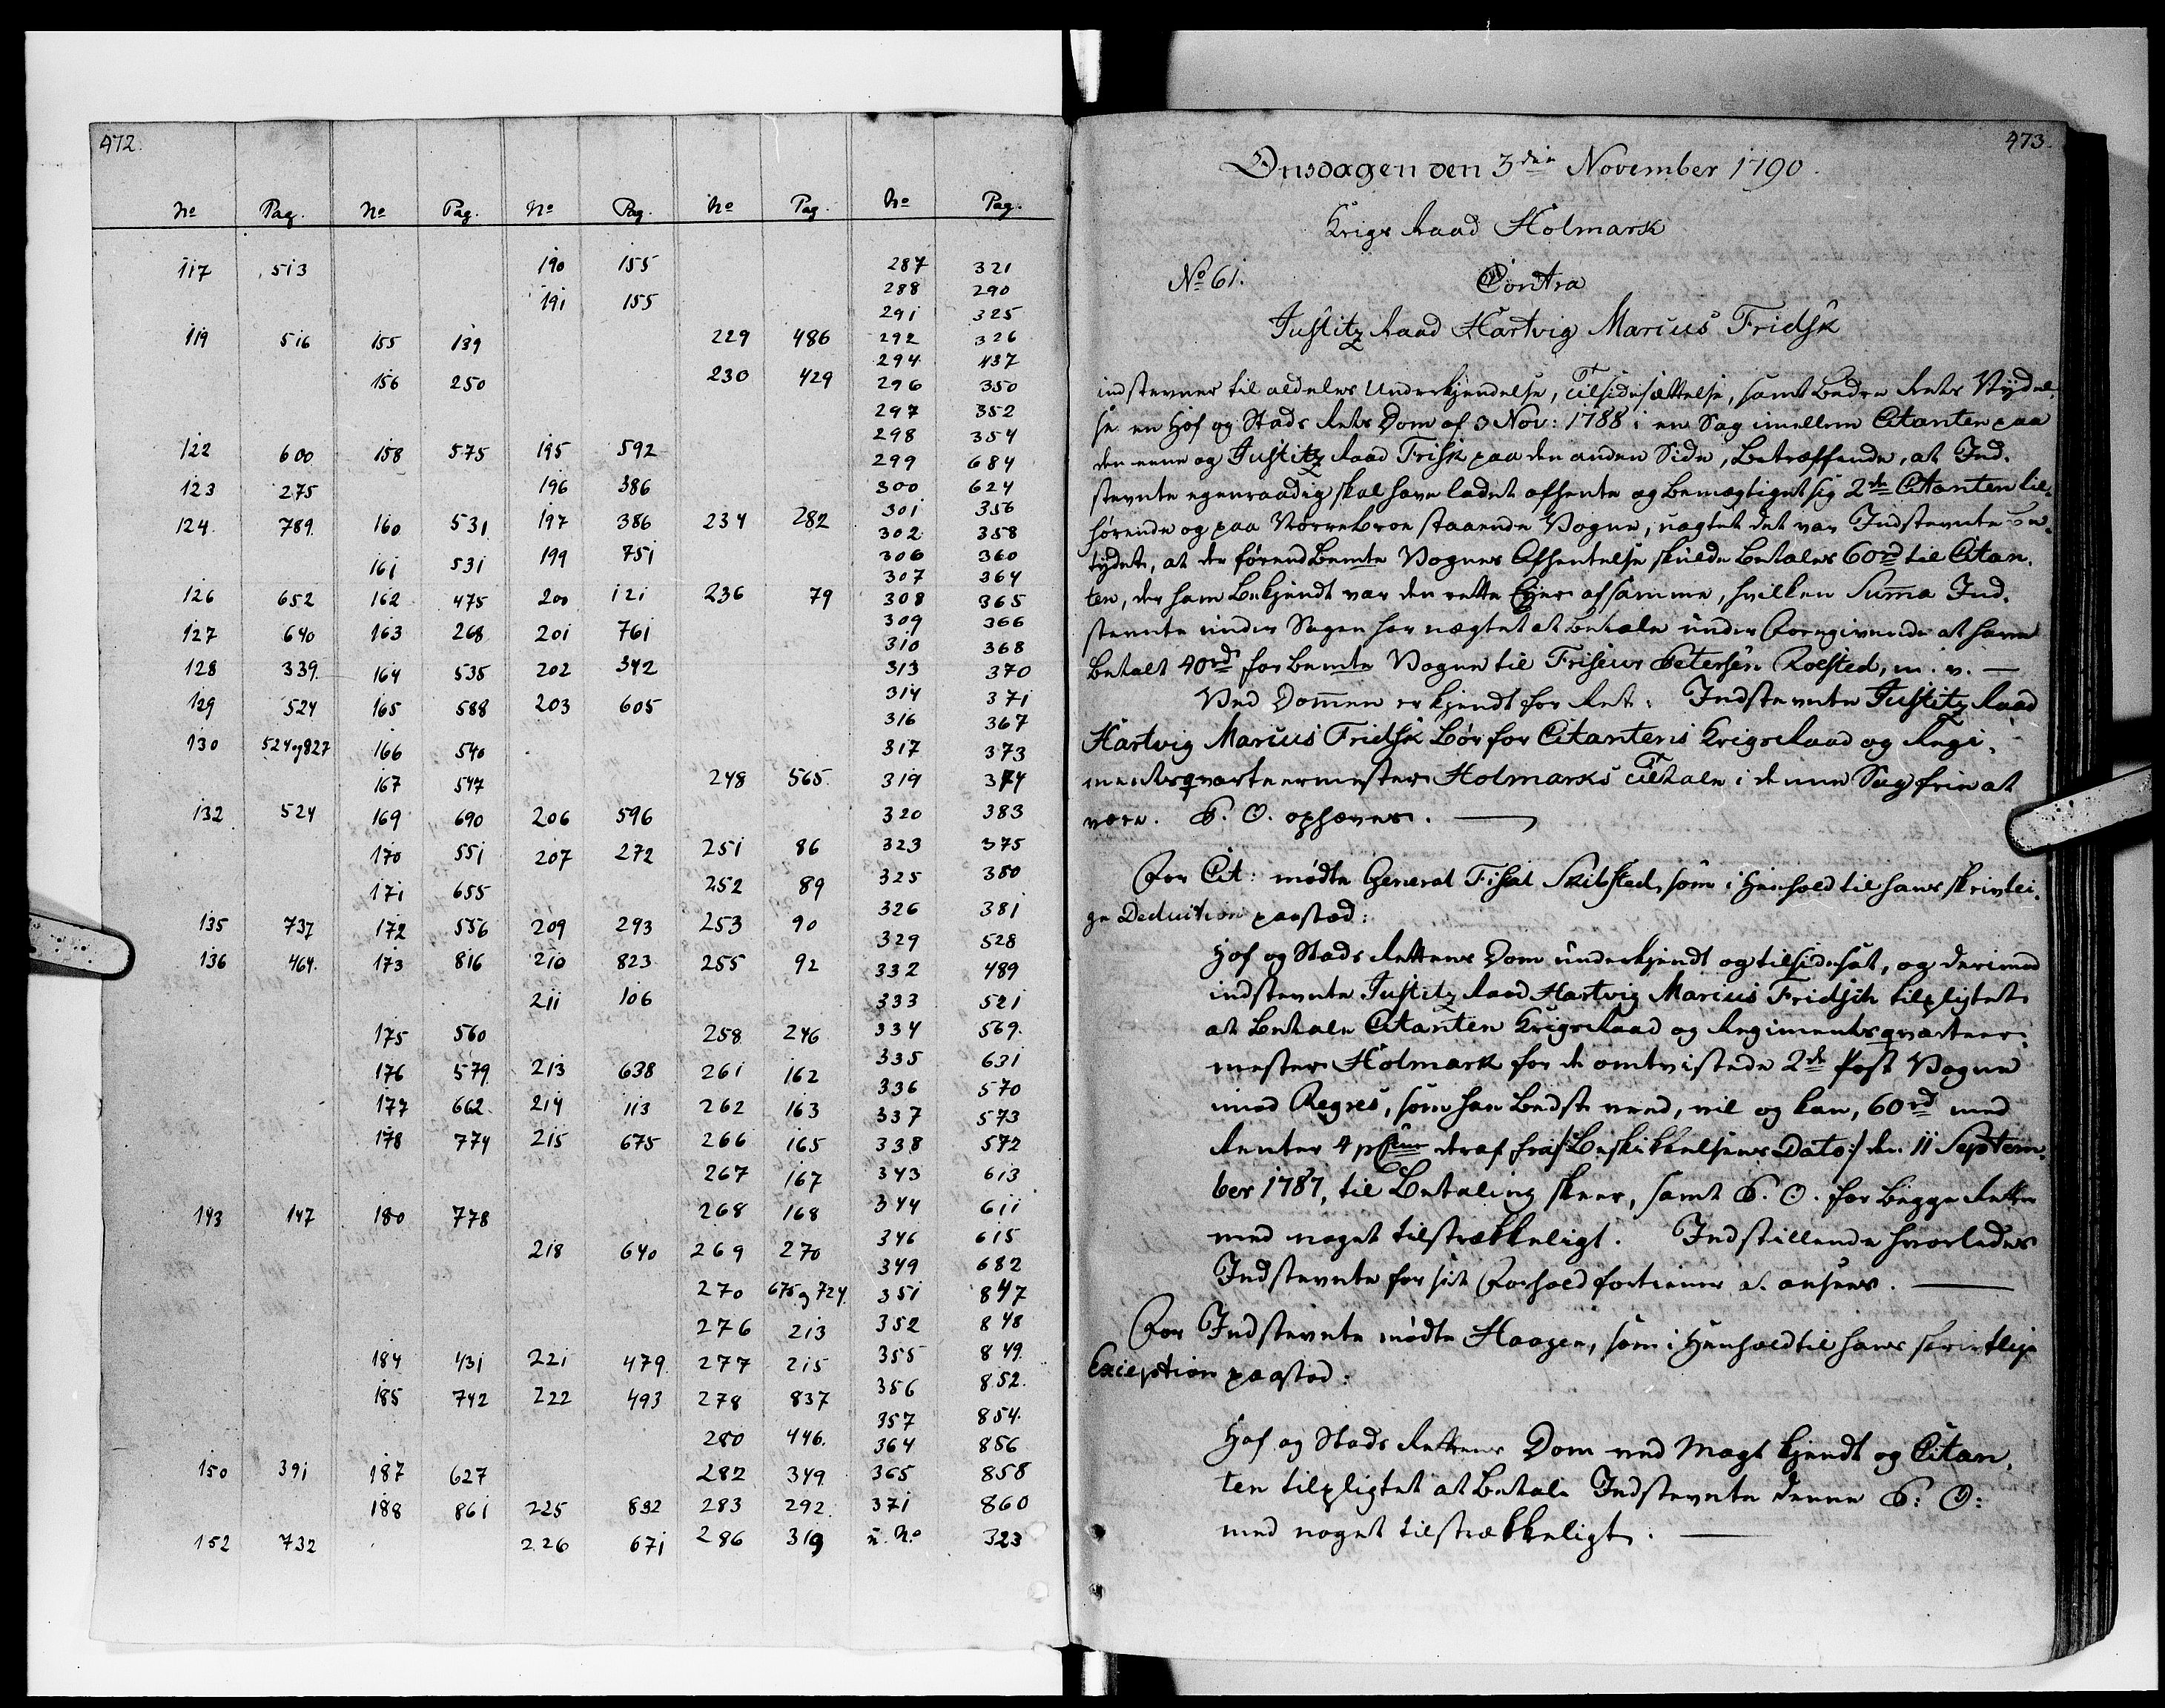 472.
No Pag. No Pag. No Pag. No Pag No Pag.
117 513 190 155 287 321
288 290
191 155 291 325
119 516 155 139 229 486 292 326
294 437
156 250 230 429 296 350
297 352
298 354
122 600 158 575 195 592 299 684
123 275 196 386 300 624
301 356
124 789 160 531 197 386 234 282 302 358
161 531 199 751 306 360
307 364
126 652 162 475 200 121 236 79 308 365
309 366
127 640 163 268 201 761 310 368
128 339 164 535 202 342 313 370
129 524 165 588 203 605 314 371
316 367
130 524 og 827 166 540 317 373
167 547 248 565 319 374
132 524 169 690 206 596 320 383
170 551 207 272 251 86 323 375
171 655 252 89 325 380
326 381
135 737 172 556 209 293 253 90 329 528
136 464 173 816 210 823 255 92 332 489
211 106 333 521
175 560 258 246 334 569
335 631
176 579 213 638 261 162 336 570
177 662 214 113 262 163 337 573
178 774 215 675 266 165 338 572
267 167 343 613
143 147 180 778 268 168 344 611
346 615
218 640 269 270 349 682
270 675 og 724 351 847
276 213 352 848
184 431 221 479 277 215 355 849
185 742 222 493 278 837 356 852
357 854
280 446 364 856
150 391 187 627 282 349 365 858
188 861 225 832 283 292 371 860
152 732 226 671 286 319 u. No 323
473.
Onsdagen den 3die November 1790.
Krigs Raad Holmark
No 61. Contra
Justitz Raad Hartvig Marcus Fridsk
indstevner til aldeles Underkjendelse, Tilsidesættelse, samt bedre Rets Nydel-
se en Hof og Stads Rets Dom af 3 Nov: 1788 i en Sag imellem Citanten paa
den eene og Justitz Raad Frisk paa den anden Side, betræffende, at Ind-
stevnte egenraadig skal have ladet afhente og bemægtiget sig 2de Citanten til-
hørende og paa Nørrebroe staaende Vogne, uagtet det var Indstevnte be-
tydet, at der førend bemte Vognes Afhentelse skulde betales 60rd til Citan-
ten, der ham bekjendt var den rette Ejer af samme, hvilken Suma Ind-
stevnte under Sagen har nægtet at betale under Foregivende at have
betalt 40rd for bemte Vogne til Friseur Petersen Roested, m. v. —
Ved Domen er kjendt for Ret: Indstevnte Justitz Raad
Hartvig Marcus Fridsk bør for Citantens Krigs Raad og Regi-
mentsqvarteermester Holmarks Tiltale i denne Sag frie at
være. P. O. ophæves. —
For Cit: mødte General Fiscal Skibsted, som i Henhold til hans skrivtli-
ge Deduction paastod:
Hof og Stads Rettens Dom underkjendt og tilsidesat, og derimod
indstevnte Justitz Raad Hartvig Marcus Fridsch tilpligtet
at betale Citanten Krigs Raad og Regimentsqvarteer-
mester Holmark for de omtvistede 2de Post Vogne
imod Regres, som han bedst veed, vil og kan, 60rd med
Renter 4 pCum deraf fra /: Beskikkelsens Dato :/ den 11 Septem-
ber 1787, til Betaling skeer, samt P. O. for begge Retter
med noget tilstrækkeligt. Indstillende hvorledes
Indstevnte for sit Forhold fortiener a. ansees. —
For Indstevnte mødte Haagen, som i Henhold til hans skrivtlige
Exception paastod:
Hof og Stads Rettens Dom ved Magt kjendt og Citan-
ten tilpligtet at betale Indstevnte denne P: O:
med noget tilstrækkeligt. —